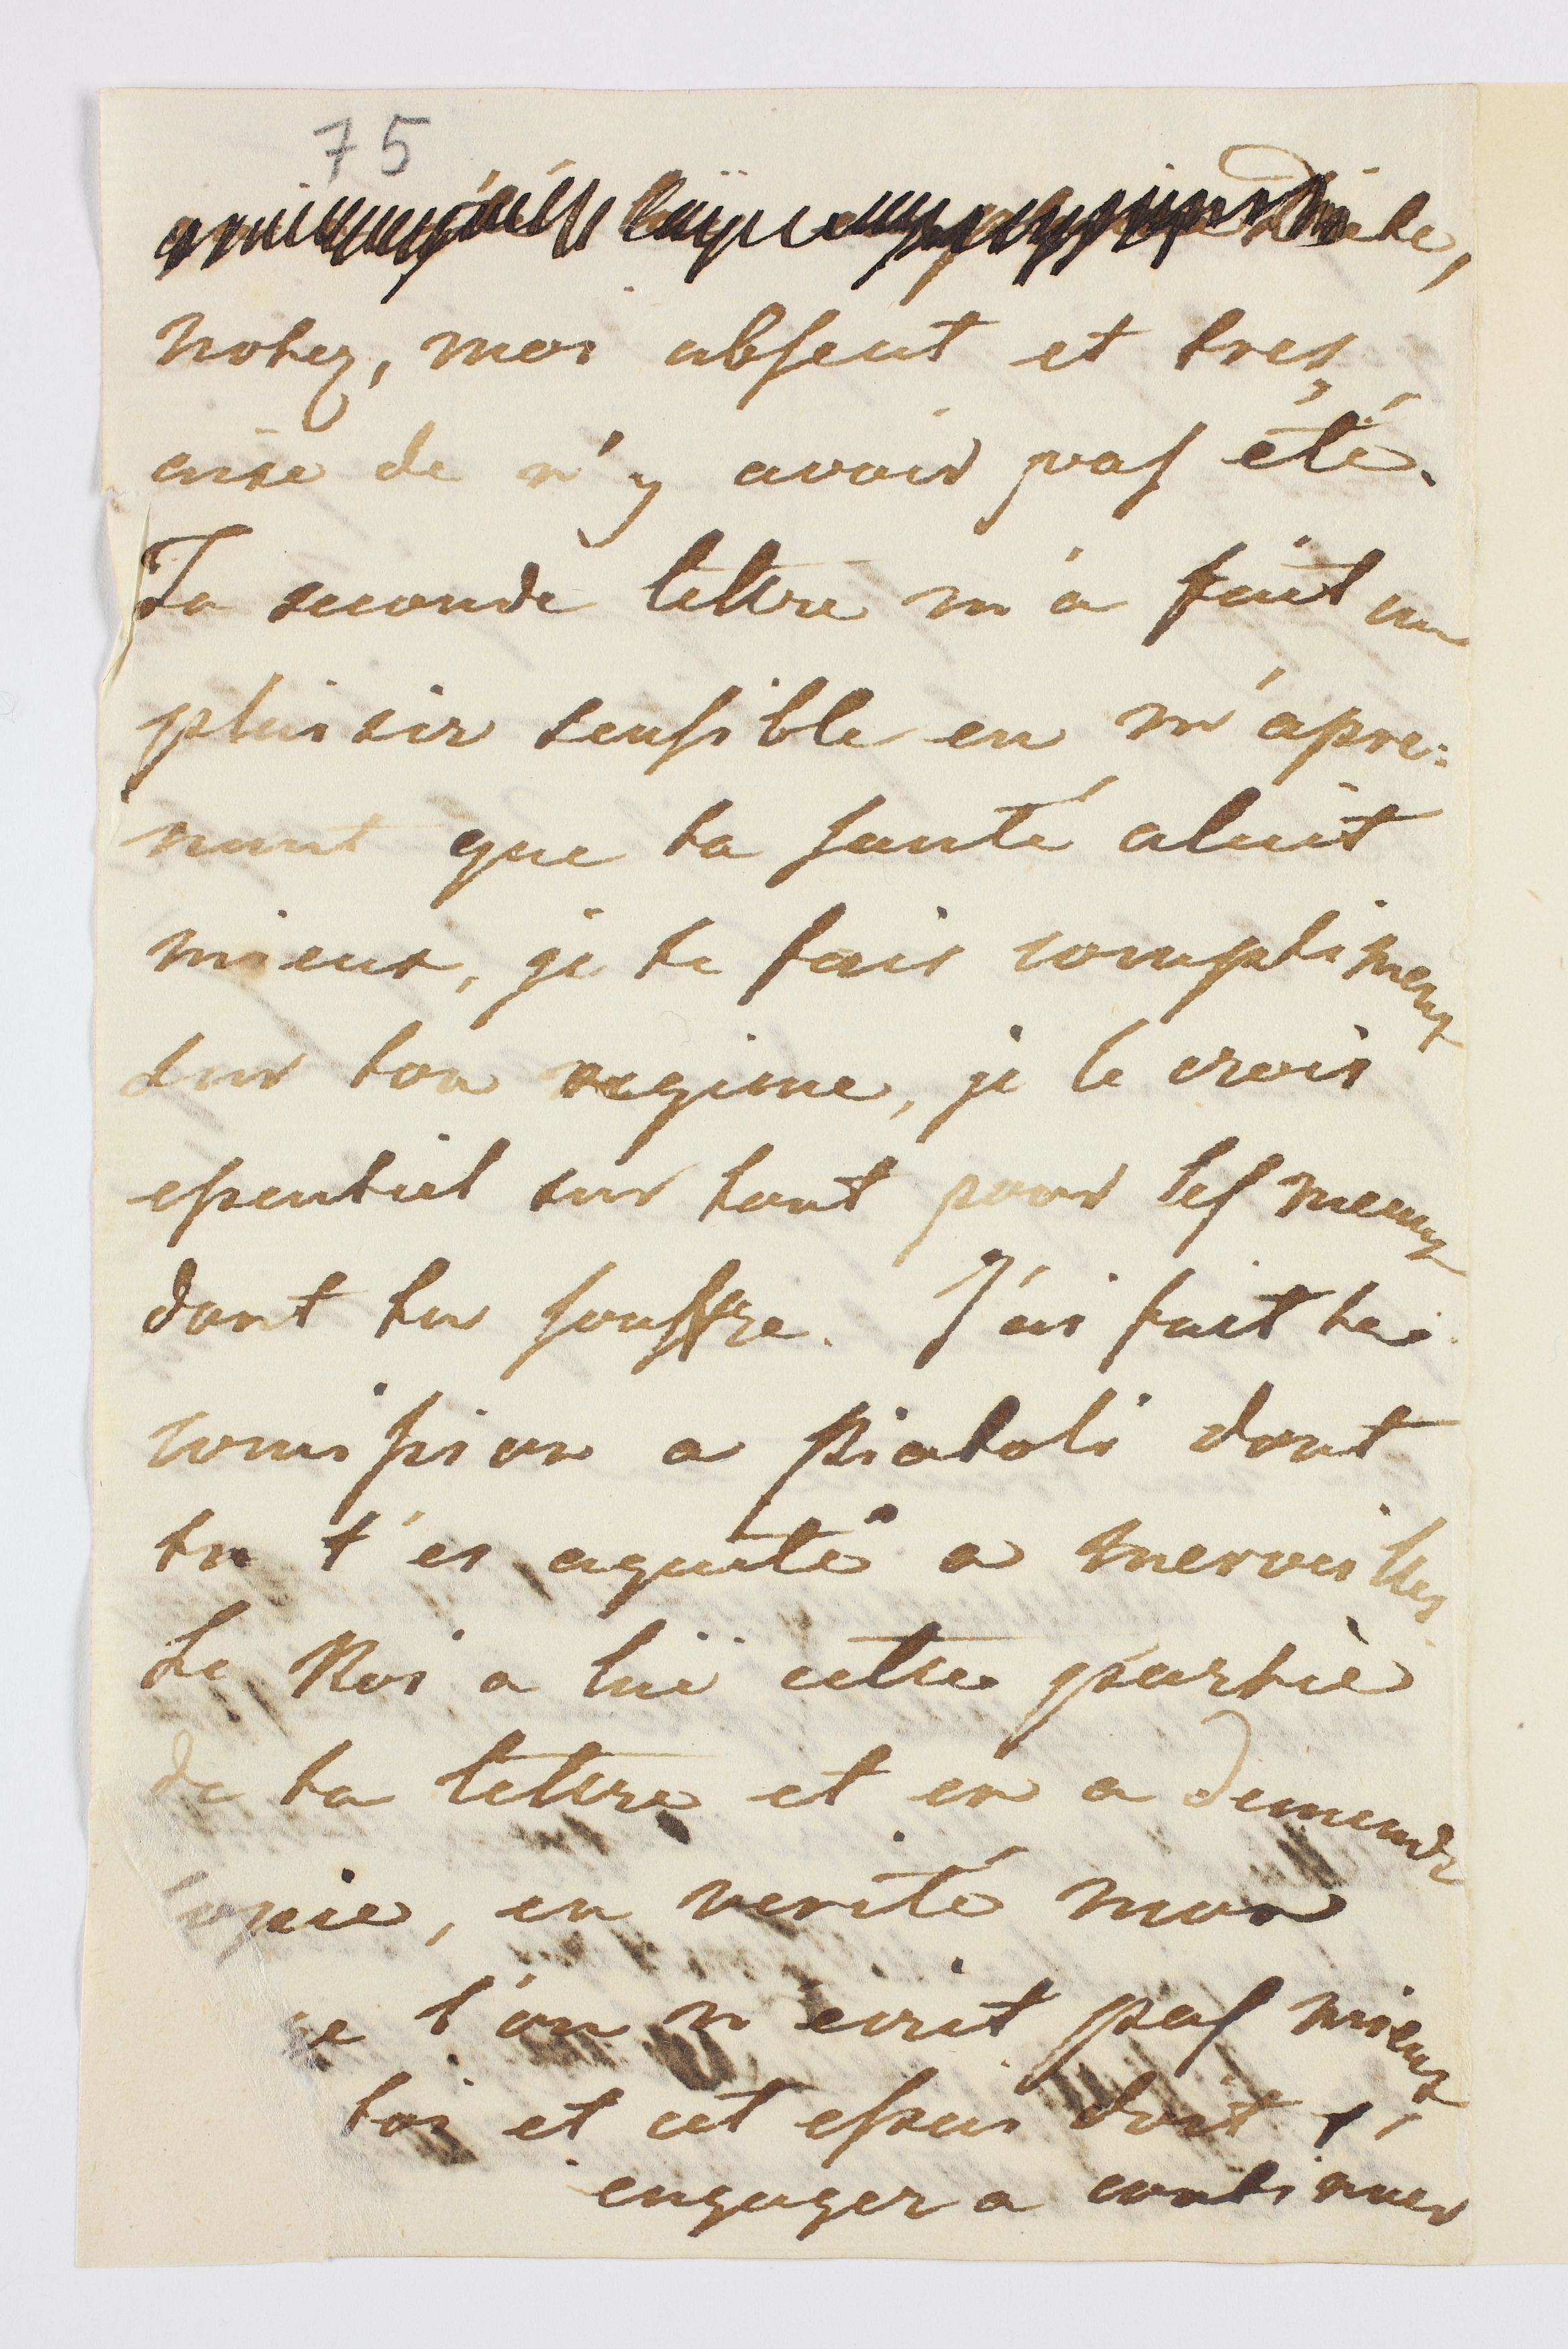 75
notez, moi absent et tres
aise de n'y avoir pas été.
Ta seconde lettre m'a fait un
plaisir sensible en m'apre=
nant que ta santé alait
mieux, je te fais compliment
sur ton regime, je le crois
essentiel sur tout pour les meaux
dont tu souffre. J'ai fait ta
comission a Piatoli dont
tu t'es aquité a merveilles
Le Roi a luë cette partie
de ta lettre et en a demandé
copie, en verité mon
l'on n'ecrit pas mieux
toi et cet essai doit t'
engager a continuer